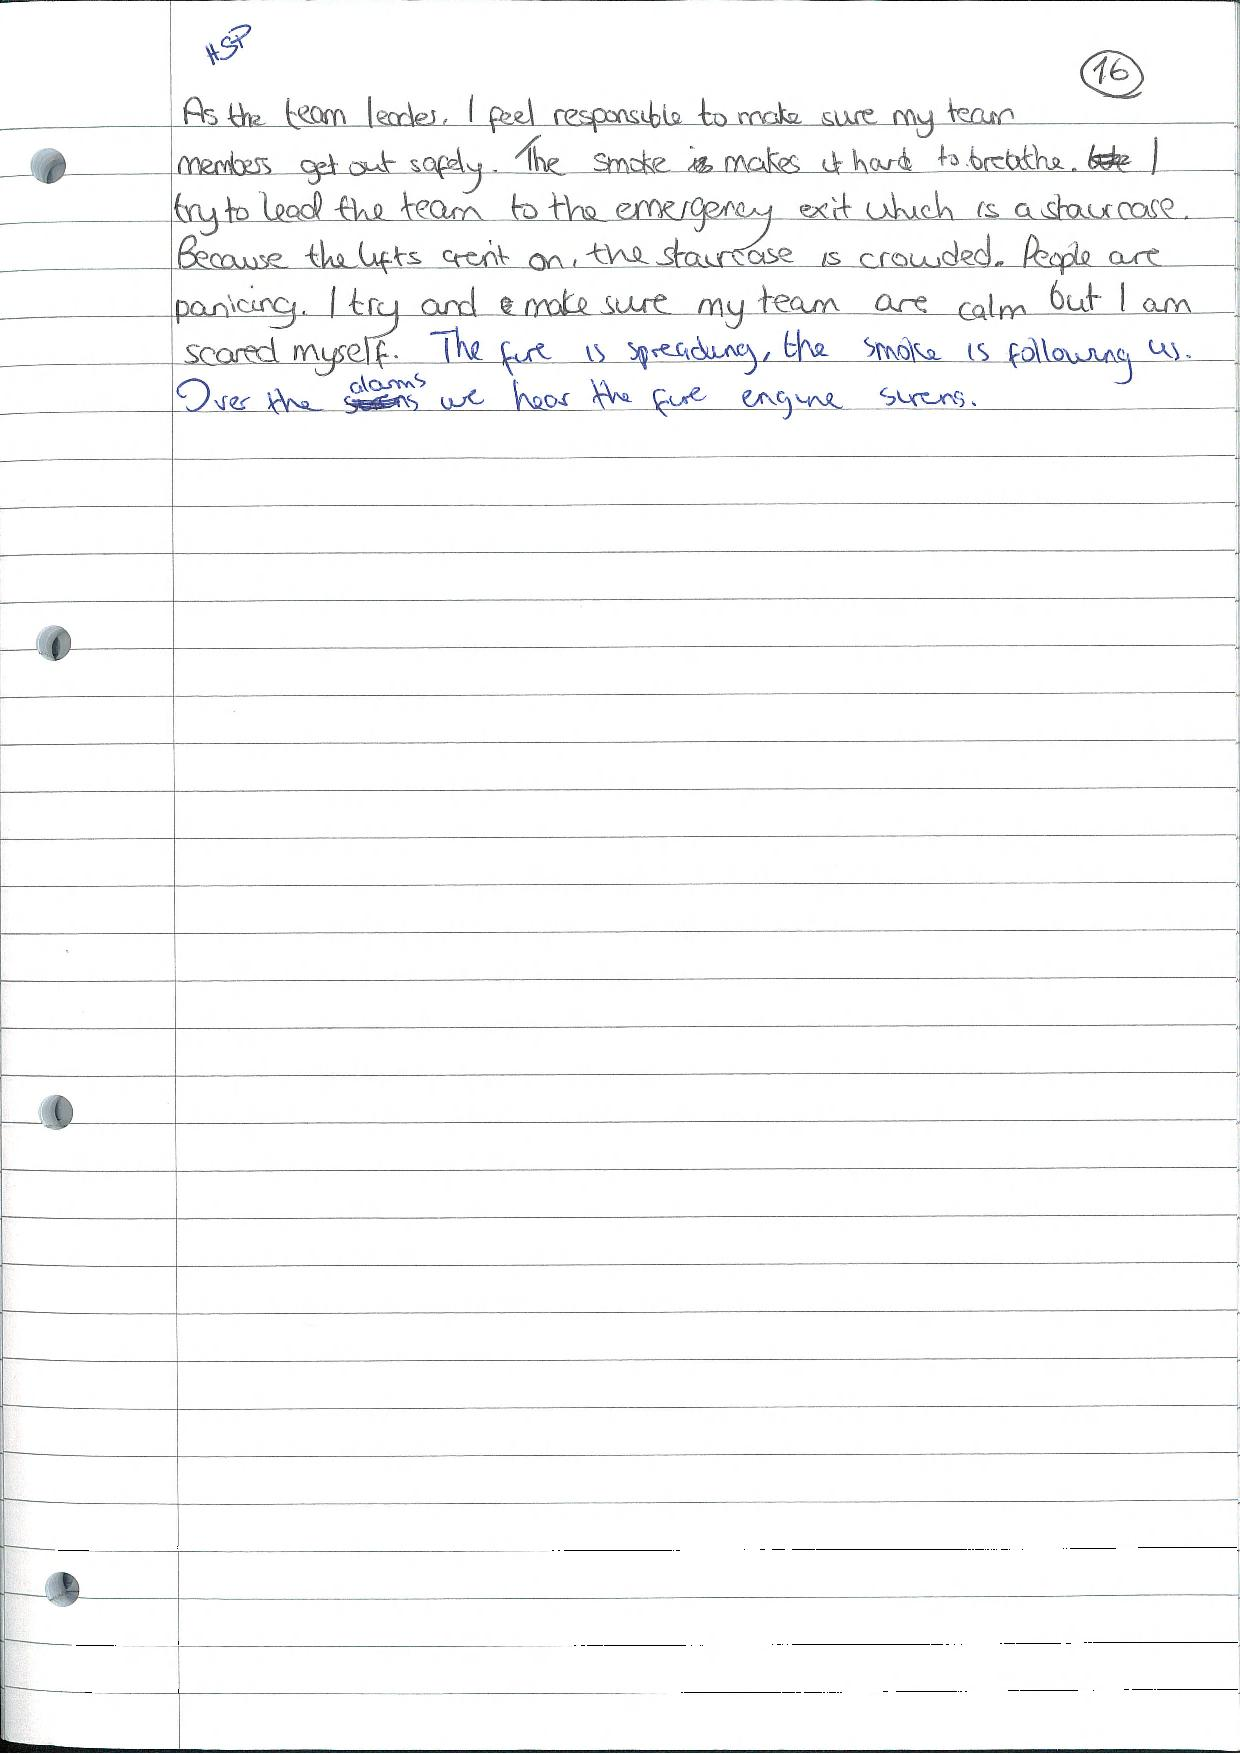 HSP
16
As the team leader, I feel responsible to make sure my team
members get out safely. The smoke is makes it hard to breathe. I
try to lead the team to the emergency exit which is a staircase.
Because the lifts aren't on, the staircase is crowded. People are
panicing. I try and make sure my team are calm but I am
scared myself. The fire is spreading, the smoke is following us.
Over the alarms we hear the fire engine sirens.